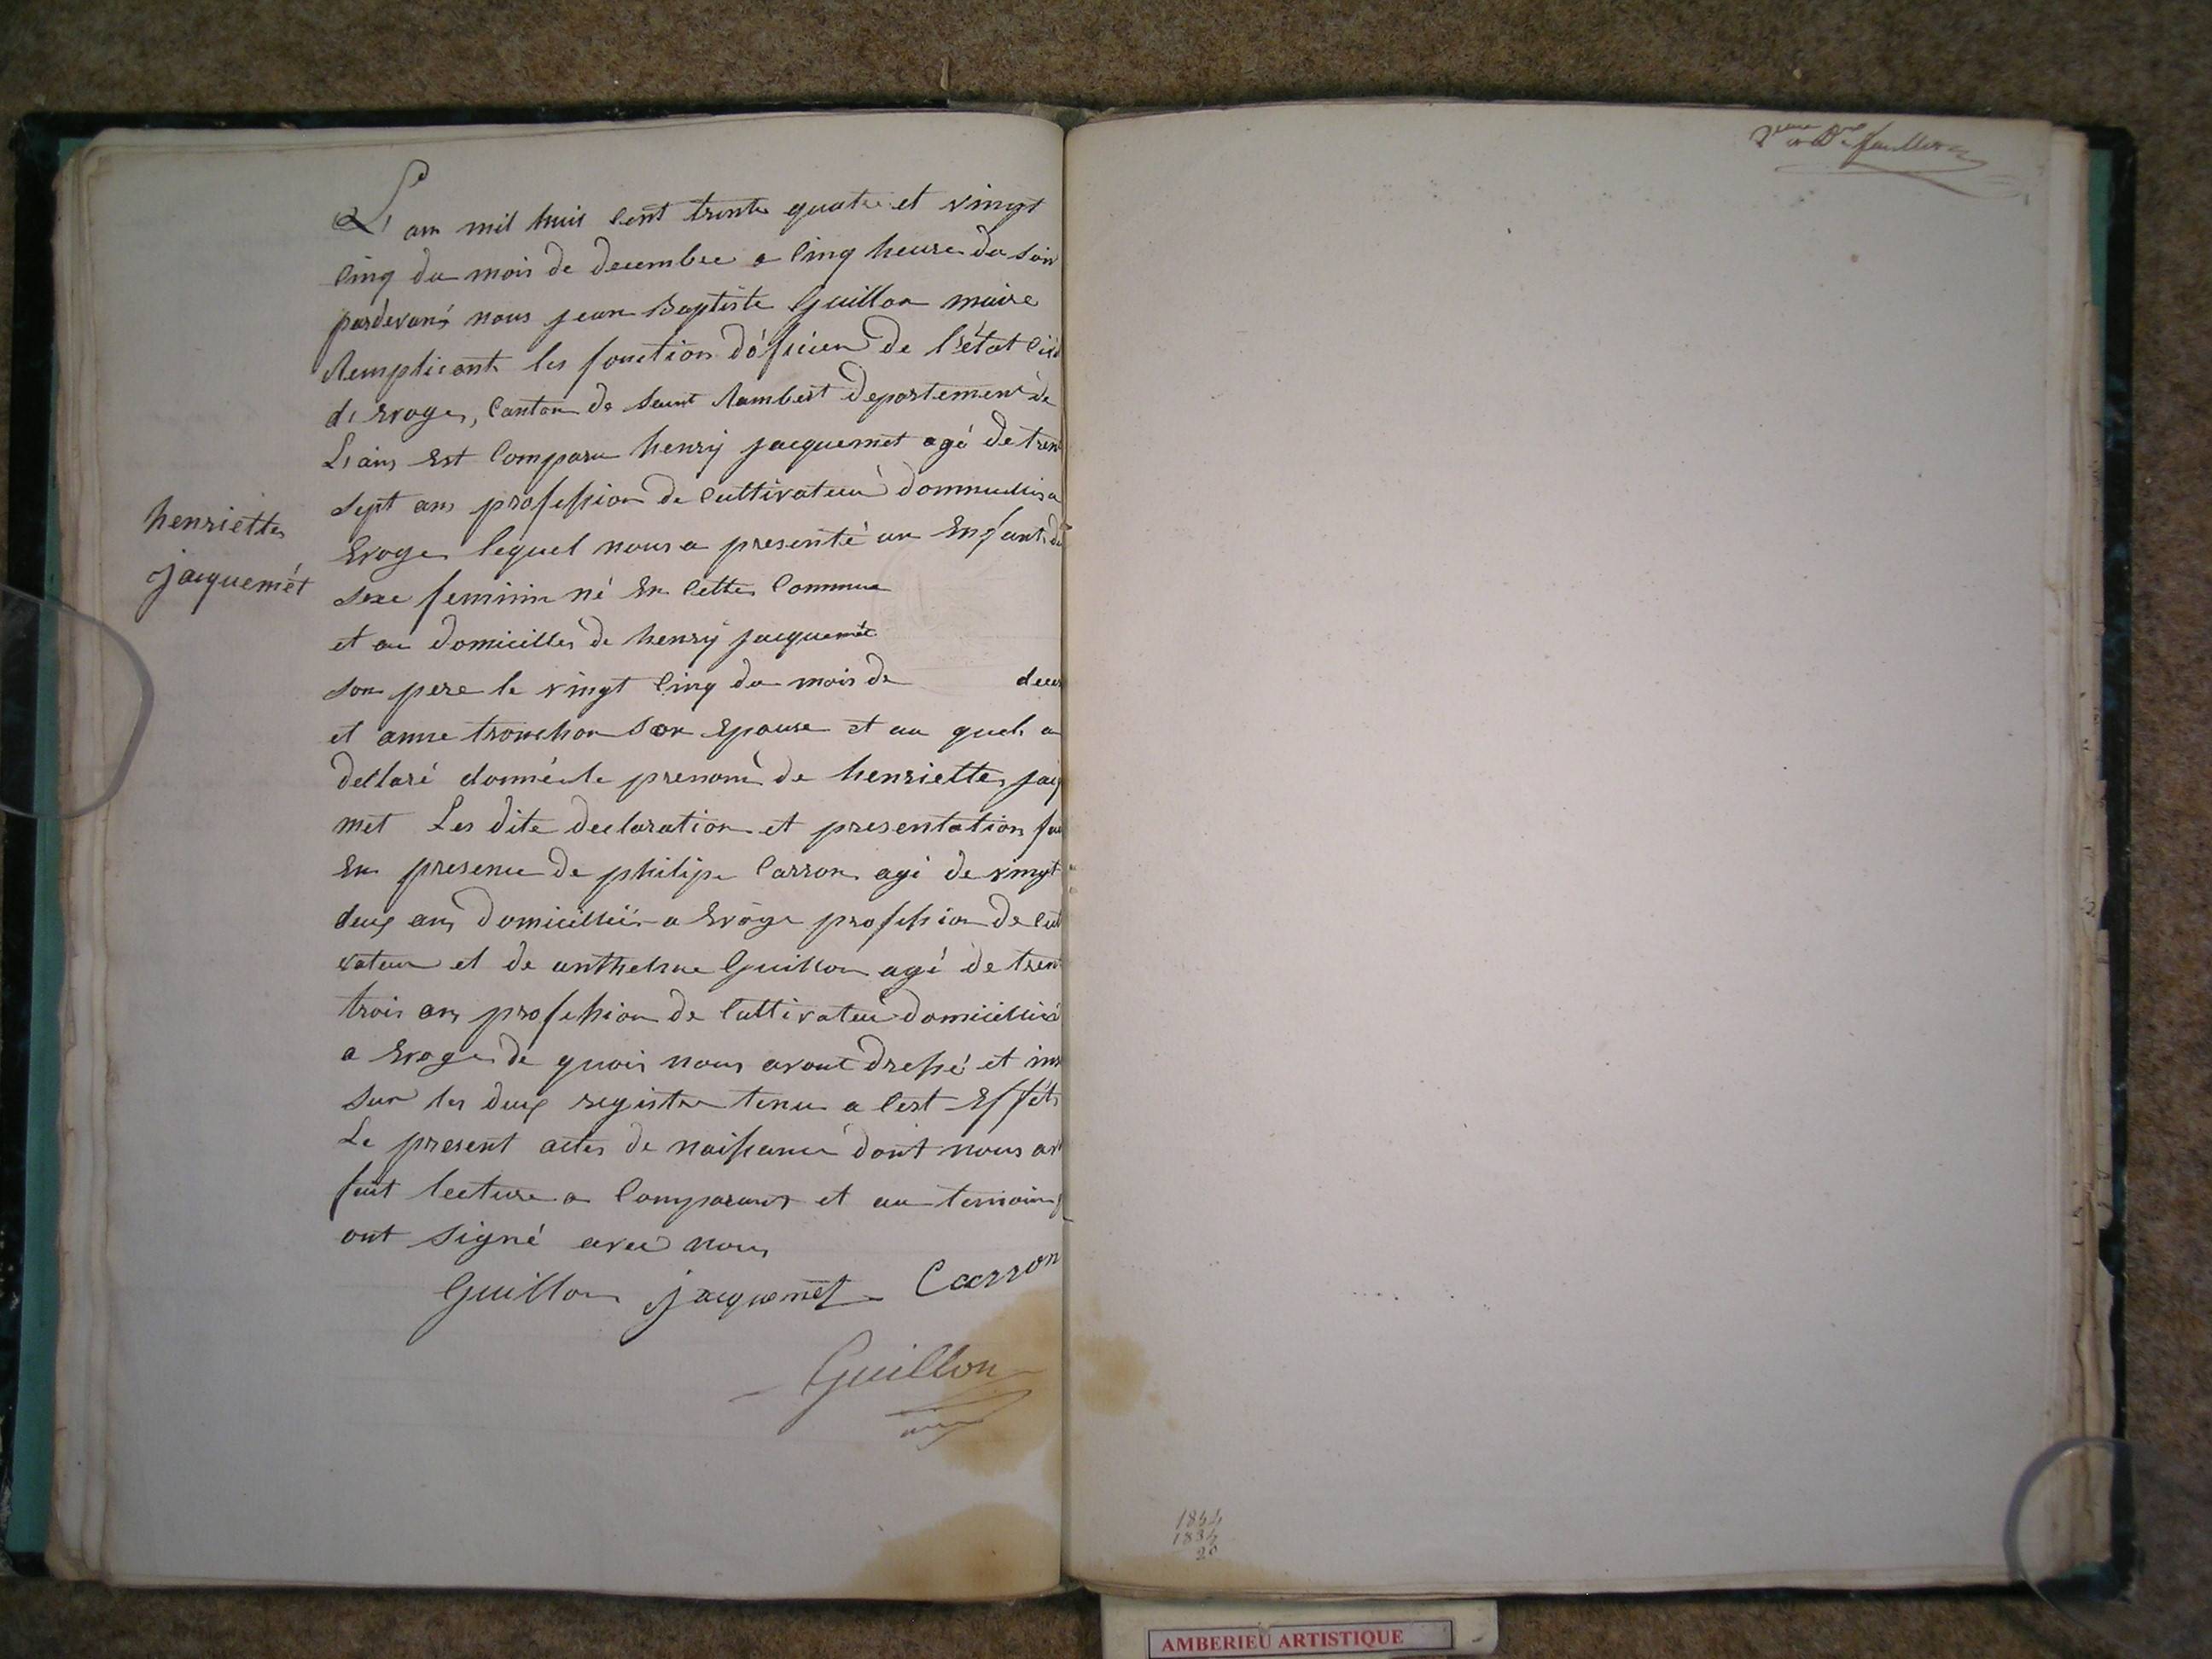 henriette
jacquemét
L'an mil huit Cent trente quatre et vingt
Cinq du mois de decembre a Cinq heure du Soir
pardevant nous jean Baptiste Guillon maire
Remplicant les fonction d'óficier de l'état Civil
de Evoges, Canton de Saint Rambert Departement de
L'ain Est Comparu henry jacquemet agé de tren
Sept ans profession de Cultivateur a
Evoges lequel nous a presenté un Enfant du
Sexe feminin né En Cette Commune
et au Domicilles de henry jacquemet
Son pere le vingt Cinq du mois de decem
et anne tronchon Son Epouse et au quel a
declaré donné le prenom de henriette jacq
met Les dite declaration et presentation fai
En presence de philipe Carron agé de vingt
deux ans Domicillié a Evoge profession de Cult
vateur et de anthelme Guillon agé de tren
trois ans profession de Cultivateur domicillié
a Evoges de quoi nous avont dressé et ins
Sur les deux registre tenu a Cest Effét
Le present actes de naissance dont nous av
fait lecture a Comparant et au temoins
ont Signé avec nous
Guillon jacquemet Carron
Guillon
1834
20
AMBERIEU ARTISTIQUE